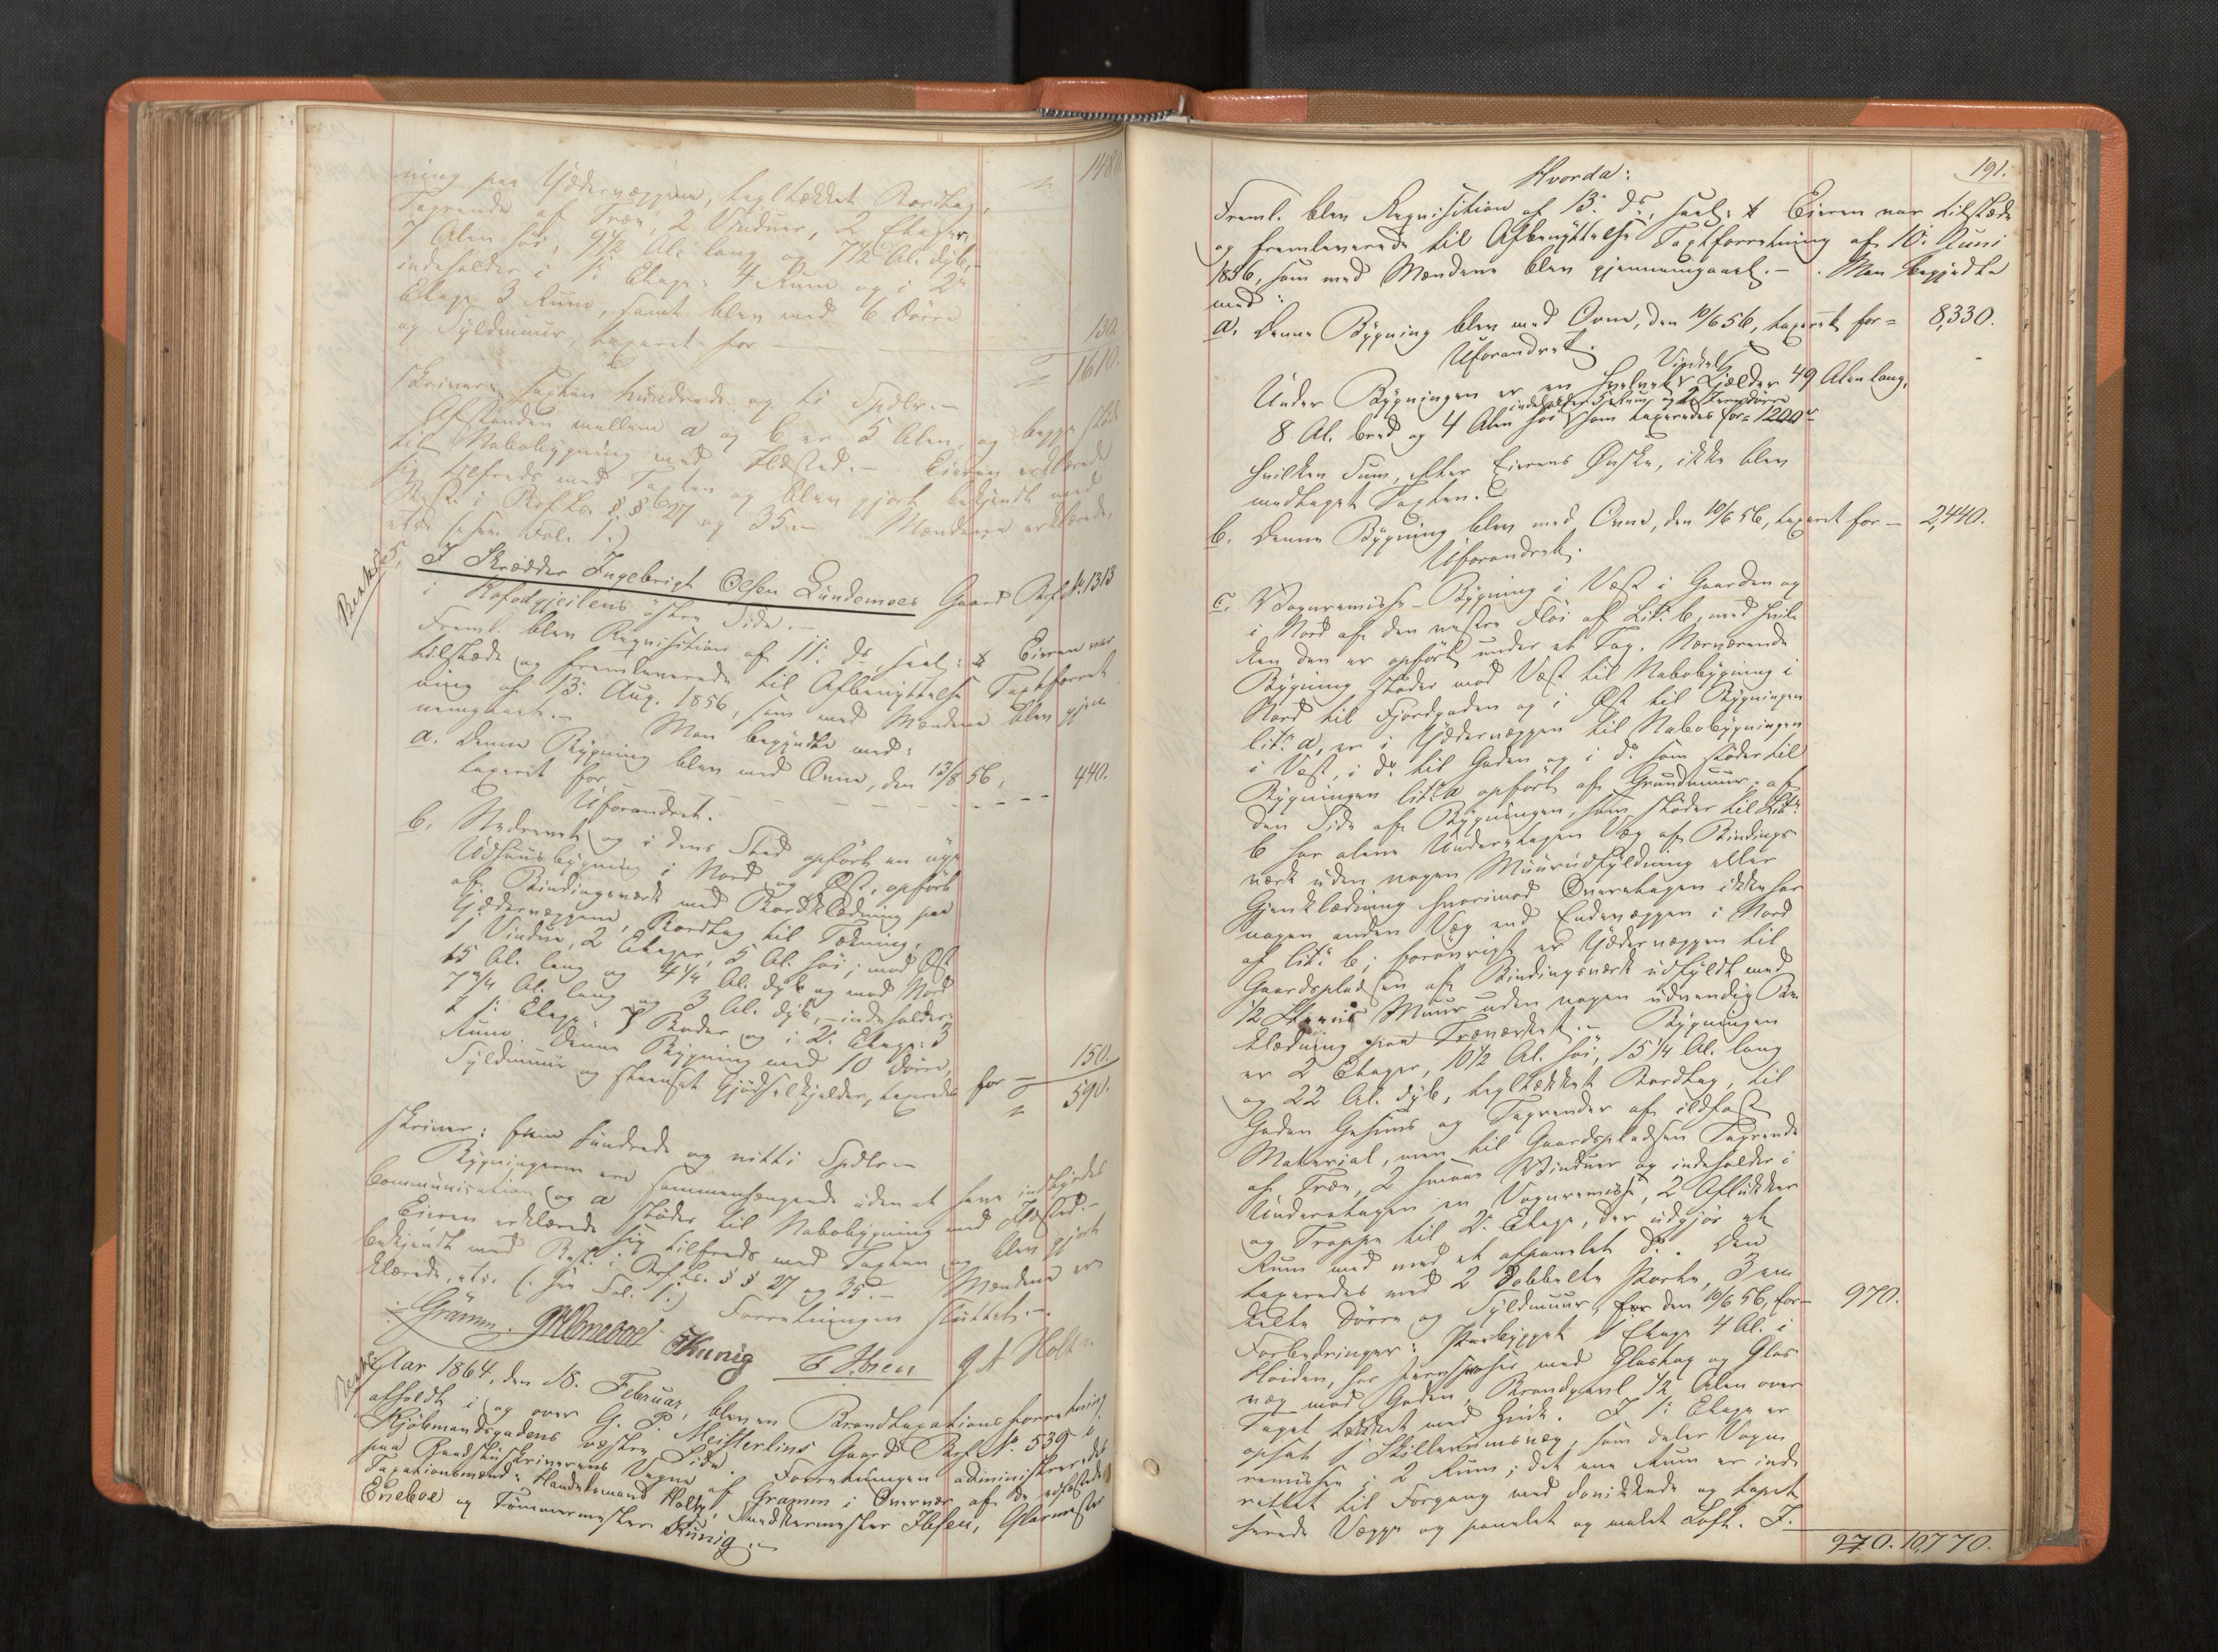 1480.
ning paa Ydervæggene, teglhækket Bordtag,
Tagrende af Træ, 2 Vinduer, 2 Etager,
7 Alen høi, 9 1/2 Al. lang og 7 1/2 Al. dyb,
indeholder i 1: Etage: 4 Rum og i 2:
Etage 3 Rum, samt blev med 6 Dörre
og Syldmuur, taxeret for — 130.
1610.
skriver: sexten hundrede og ti Spdlr. —
Afstanden mellem a og b er 5 Alen, og begge støde
til Nabobygning med Ildsted. — Eieren erklærede
sig tilfreds med Taxten og blev gjort bekjendt med
Best. i Brf. Lov §§ 27 og 35. — Mændene erklærede,
etc. (see Fol. 1.)
5. I Skrædder Ingebrigt Olsen Lundemoes Gaard Brf. No. 1313
i Kofodgjeilens östre Side. —
Freml. blev Requisition af 11: ds., saal: Eieren var
tilstæde og fremleverede til Afbenyttelse Taxtforret
ning af 13: Aug. 1856, som med Mændene blev gjen
nemgaaet. — Man begyndte med:
a. Denne Bygning blev med Ovne, den 13/8 56,
taxeret for — 440.
Uforandret.
b. Nedrevet og i dens Sted opført en nye
Udhuusbygning i Nord og Øst, opført
af Bindingsværk med Bordklædning paa
Ydervæggene, Bordtag til Tækning,
1 Vindue, 2 Etager, 5 Al. høi; mod Øst
15 Al. lang og 4 1/4 Al. dyb og mod Nord
7 3/4 Al. lang og 3 Al. dyb, — indeholder:
I 1: Etage: Boder og i 2: Etage: 3
Rum. Denne Bygning med 10 Dörre,
Syldmuur og steensat Gjödselkjelder, taxeredes for — 150.
590.
skriver: fem hundrede og nitti Spdlr. —
Bygningerne ere sammenhængende uden at have indbyrdes
Communication og a støder til Nabobygning med Ildsted. —
Eieren erklærede sig tilfreds med Taxten og blev gjort
bekjendt med Best. i Brf. Lov. §§ 27 og 35. — Mændene er
klærede, etc. (see Fol. 1.) Forretningen sluttet. —
Gramm. Eneboe Kunig Ibsen Holte
Aar 1864, den 18. Februar, blev en Brandtaxationsforretning
afholdt i og over G. P. Meisterlins Gaard Brf. No. 539 i
Kjöbmandsgadens vestre Side. Forretningen administreredes
paa Raadstueskriverens Vegne af Gramm i Overvær af de edfæstede
Taxationsmænd: Handelsmand Holte, Snedkermester Ibsen, Glarmester
Eneboe og Tömmermester Kunig. —
191.
Hvorda:
Freml. blev Requisition af 13: ds., saal: Eieren var tilstæde
og fremleverede til Afbenyttelse Taxtforretning af 10: Juni
1856, som med Mændene blev gjennemgaaet. — Man begyndte
med:
a. Denne Bygning blev med Ovne, den 10/6 56, taxeret for = 8,330.
Uforandret.
Under Bygningen er en hvelvet Kjælder 49 Alen lang,
8 Al. bred og 4 Alen høi som taxeredes for = 1200
hvilken Sum, efter Eierens Ønske, ikke blev
medtaget Taxten.
b. Denne Bygning blev med Ovne, den 10/6 56, taxeret for — 2,440.
Uforandret.
c. Vognremisse-Bygning i Vest i Gaarden og
i Nord af den vestre Fløi af Litr. b, med hvil
ken den er opført under et Tag. Nærværende
Bygning støder mod Vest til Nabobygning i
Nord til Fjordgaden og i Øst til Bygningen
litr. a, er i Ydervæggen til Nabobygningen
i Vest, i do. til Gaden og i do. som støder til
Bygningen litr. a opført af Grundmuur; af
den Side af Bygningen, som støder til Litr.
b har alene Underetagen Væg af Bindings
værk uden nogen Muurudfyldning eller
Gjenklædning hvorimod Overetagen ikke har
nogen anden Væg end Endevæggen i Nord
af litr. b; forøvrigt er Ydervæggen til
Gaardspladsen af Bindingsværk udfyldt med
1/2 Steens Muur uden nogen udvendig Be
klædning paa Træværket. — Bygningen
er 2 Etager, 10 1/2 Al. høi, 15 1/4 Al. lang
og 22 Al. dyb, teglhækket Bordtag, til
Gaden Gesims og Tagrender af ildfast
Material, men til Gaardspladsen Tagrende
af Træ, 2 smaae Vinduer og indeholder i
Underetagen en Vognremisse, 2 Aflukker
og Trappe til 2: Etage, der udgjør et
Rum med et afpanelet do. Den
taxeredes med 2 dobbelte Porte, 3 en
kelte Dörre og Syldmuur, den 10/6 56, for — 970.
Forbedringer: Paabygget 1 Etage 4 Al. i
Høiden, har med Glastag og Glas
væg mod Gaden, Brandgavl 1/2 Alen over
Taget tækket med Zink. I 1: Etage er
opsat 1 Skillerumsvæg, som deler Vogn
remissen i 2 Rum; det ene Rum er ind
rettet til Forgang med og tapet
serede Vægge og panelet og malet Loft. I.
970. 10,770.